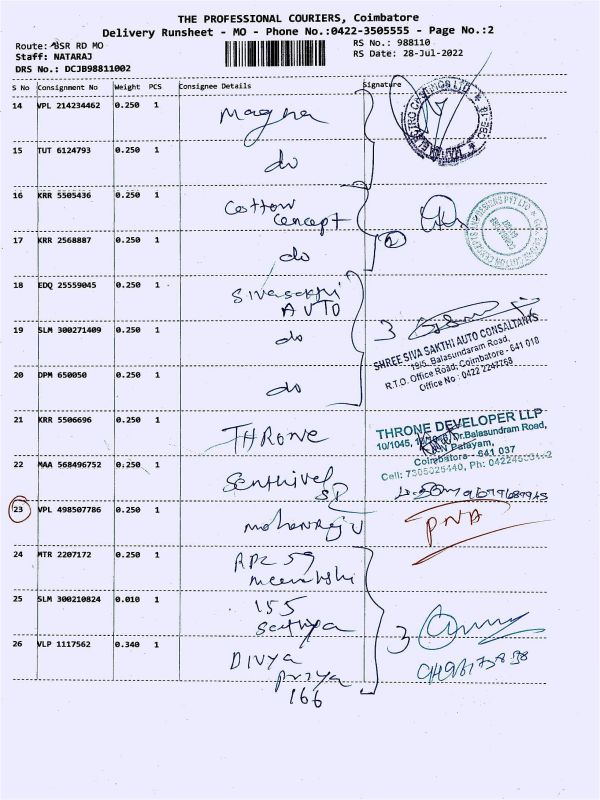 THE PROFESSIONAL COURIERS, Coimbatore
Delivery Runsheet - MO - Phone No.:0422-3505555 - Page No.:2
Route: BSR RD MO
RS No.: 988110
Staff: NATARAJ
RS Date: 28-Jul-2022
DRS No.: DCJB98811002
S No Consignment No Weight PCS Consignee Details Signature
14 VPL 214234462 0.250 1 Magna
15 TUT 6124793 0.250 1 do
16 KRR 5505436 0.250 1 Cotton Concept
17 KRR 2568887 0.250 1 do 2
18 EDQ 25559045 0.250 1 Sivasakthi AUTO
19 SLM 300271409 0.250 1 do 3
SHREE SIVA SAKTHI AUTO CONSALTANTS
19/5, Balasundaram Road,
R.T.O. Office Road, Coimbatore - 641 018
Office No : 0422 2247768
20 DPM 650050 0.250 1 do
21 KRR 5506696 0.250 1 THRONE
THRONE DEVELOPER LLP
10/1045, Dr.Balasundram Road,
Palayam,
Coimbatore - 641 037
22 MAA 568496752 0.250 1 Senthivel SP
23 VPL 498507786 0.250 1 Mohanraj U PNA
24 MTR 2207172 0.250 1 RPZ 59 meenakshi
25 SLM 300210824 0.010 1 155 Sathya
26 VLP 1117562 0.340 1 DIVYA Priya 166 3